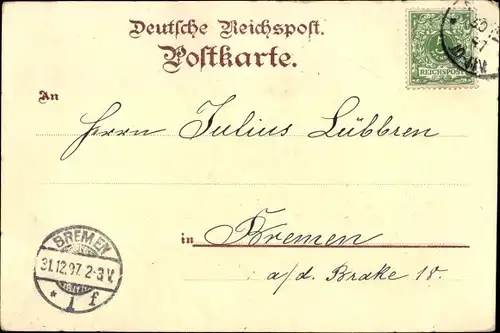 Deutsche Reichspost.
Postkarte.
5
REICHSPOST
An
Herrn Julius Lübbren
in Bremen
a/d. Brake 18.
BREMEN
31.12.97. 2-3 V.
* 1 f